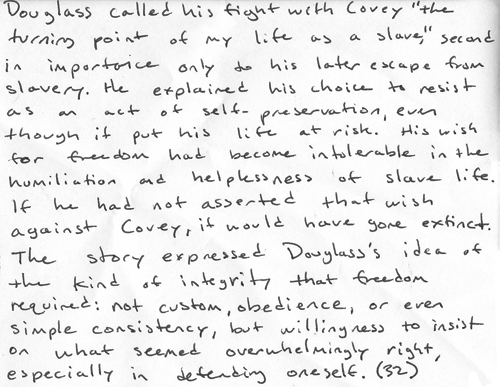 Douglass called his fight with Covey "the
turning point of my life as a slave," second
in importance only to his later escape from
slavery. He explained his choice to resist
as an act of self-preservation, even
though it put his life at risk. His wish
for freedom had become intolerable in the
humiliation and helplessness of slave life.
If he had not asserted that wish
against Covey, it would have gone extinct.
The story expressed Douglass's idea of
the kind of integrity that freedom
required: not custom, obedience, or even
simple consistency, but willingness to insist
on what seemed overwhelmingly right,
especially in defending oneself. (32)